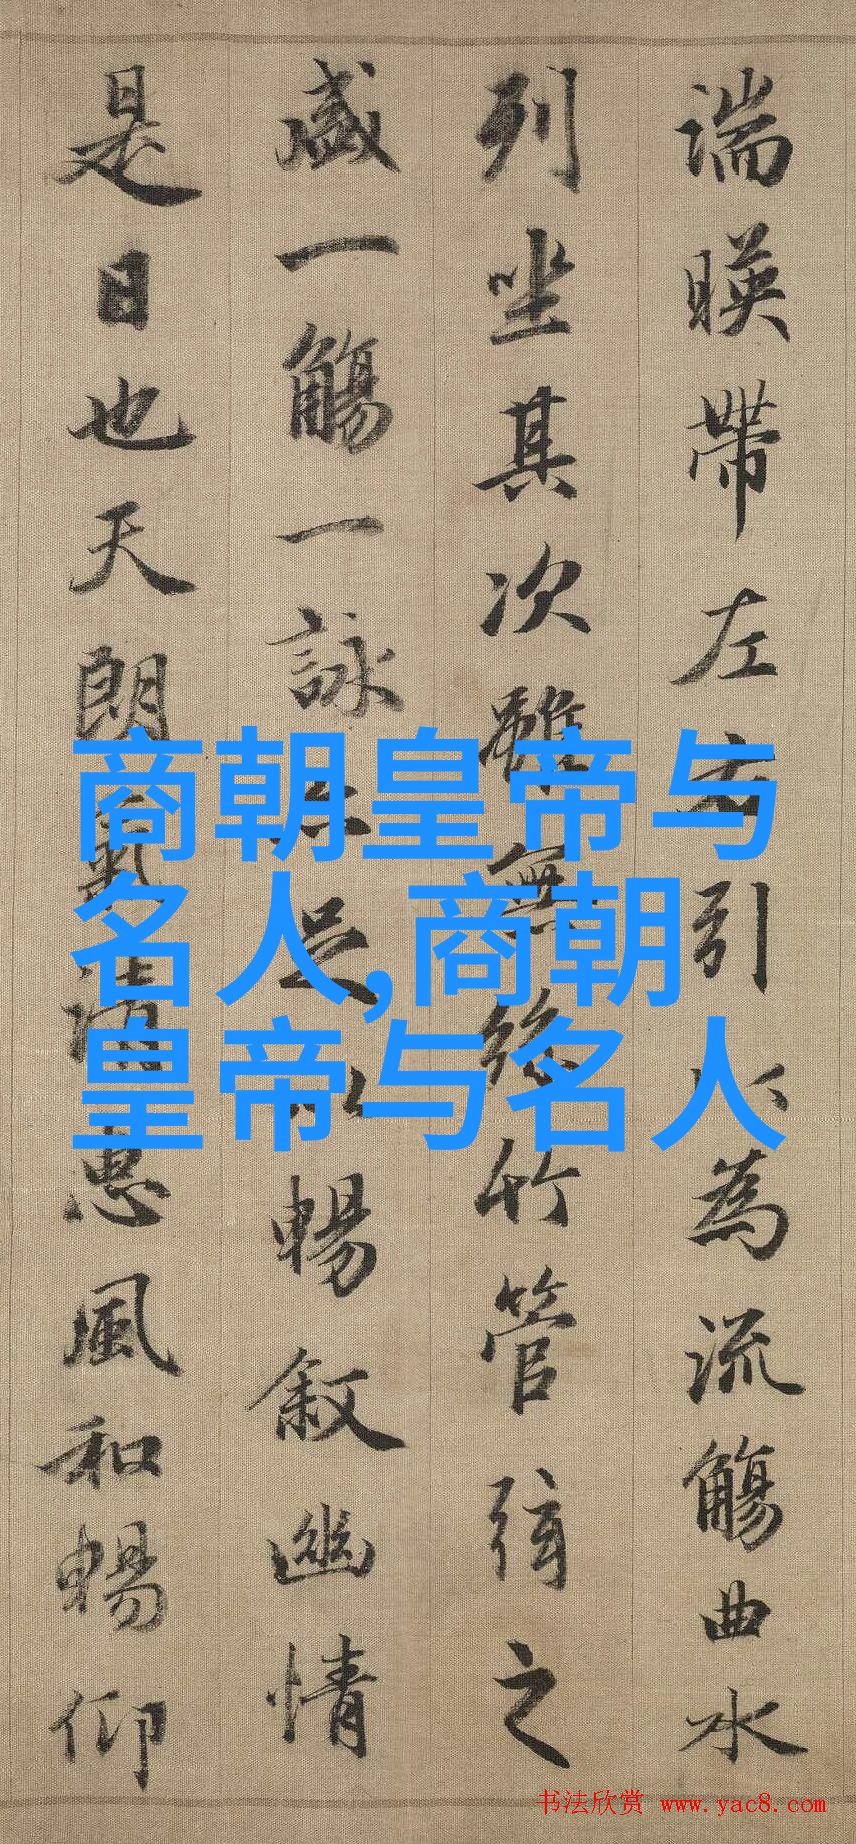 湍暎帶左右引以為流觴曲水
列坐其次雖無絲竹管弦之
盛一觴一詠亦足以暢敘幽情
是日也天朗氣清惠風和暢仰
商朝皇帝与
名人,商朝
皇帝与名人
书法欣赏 www.yac8.com